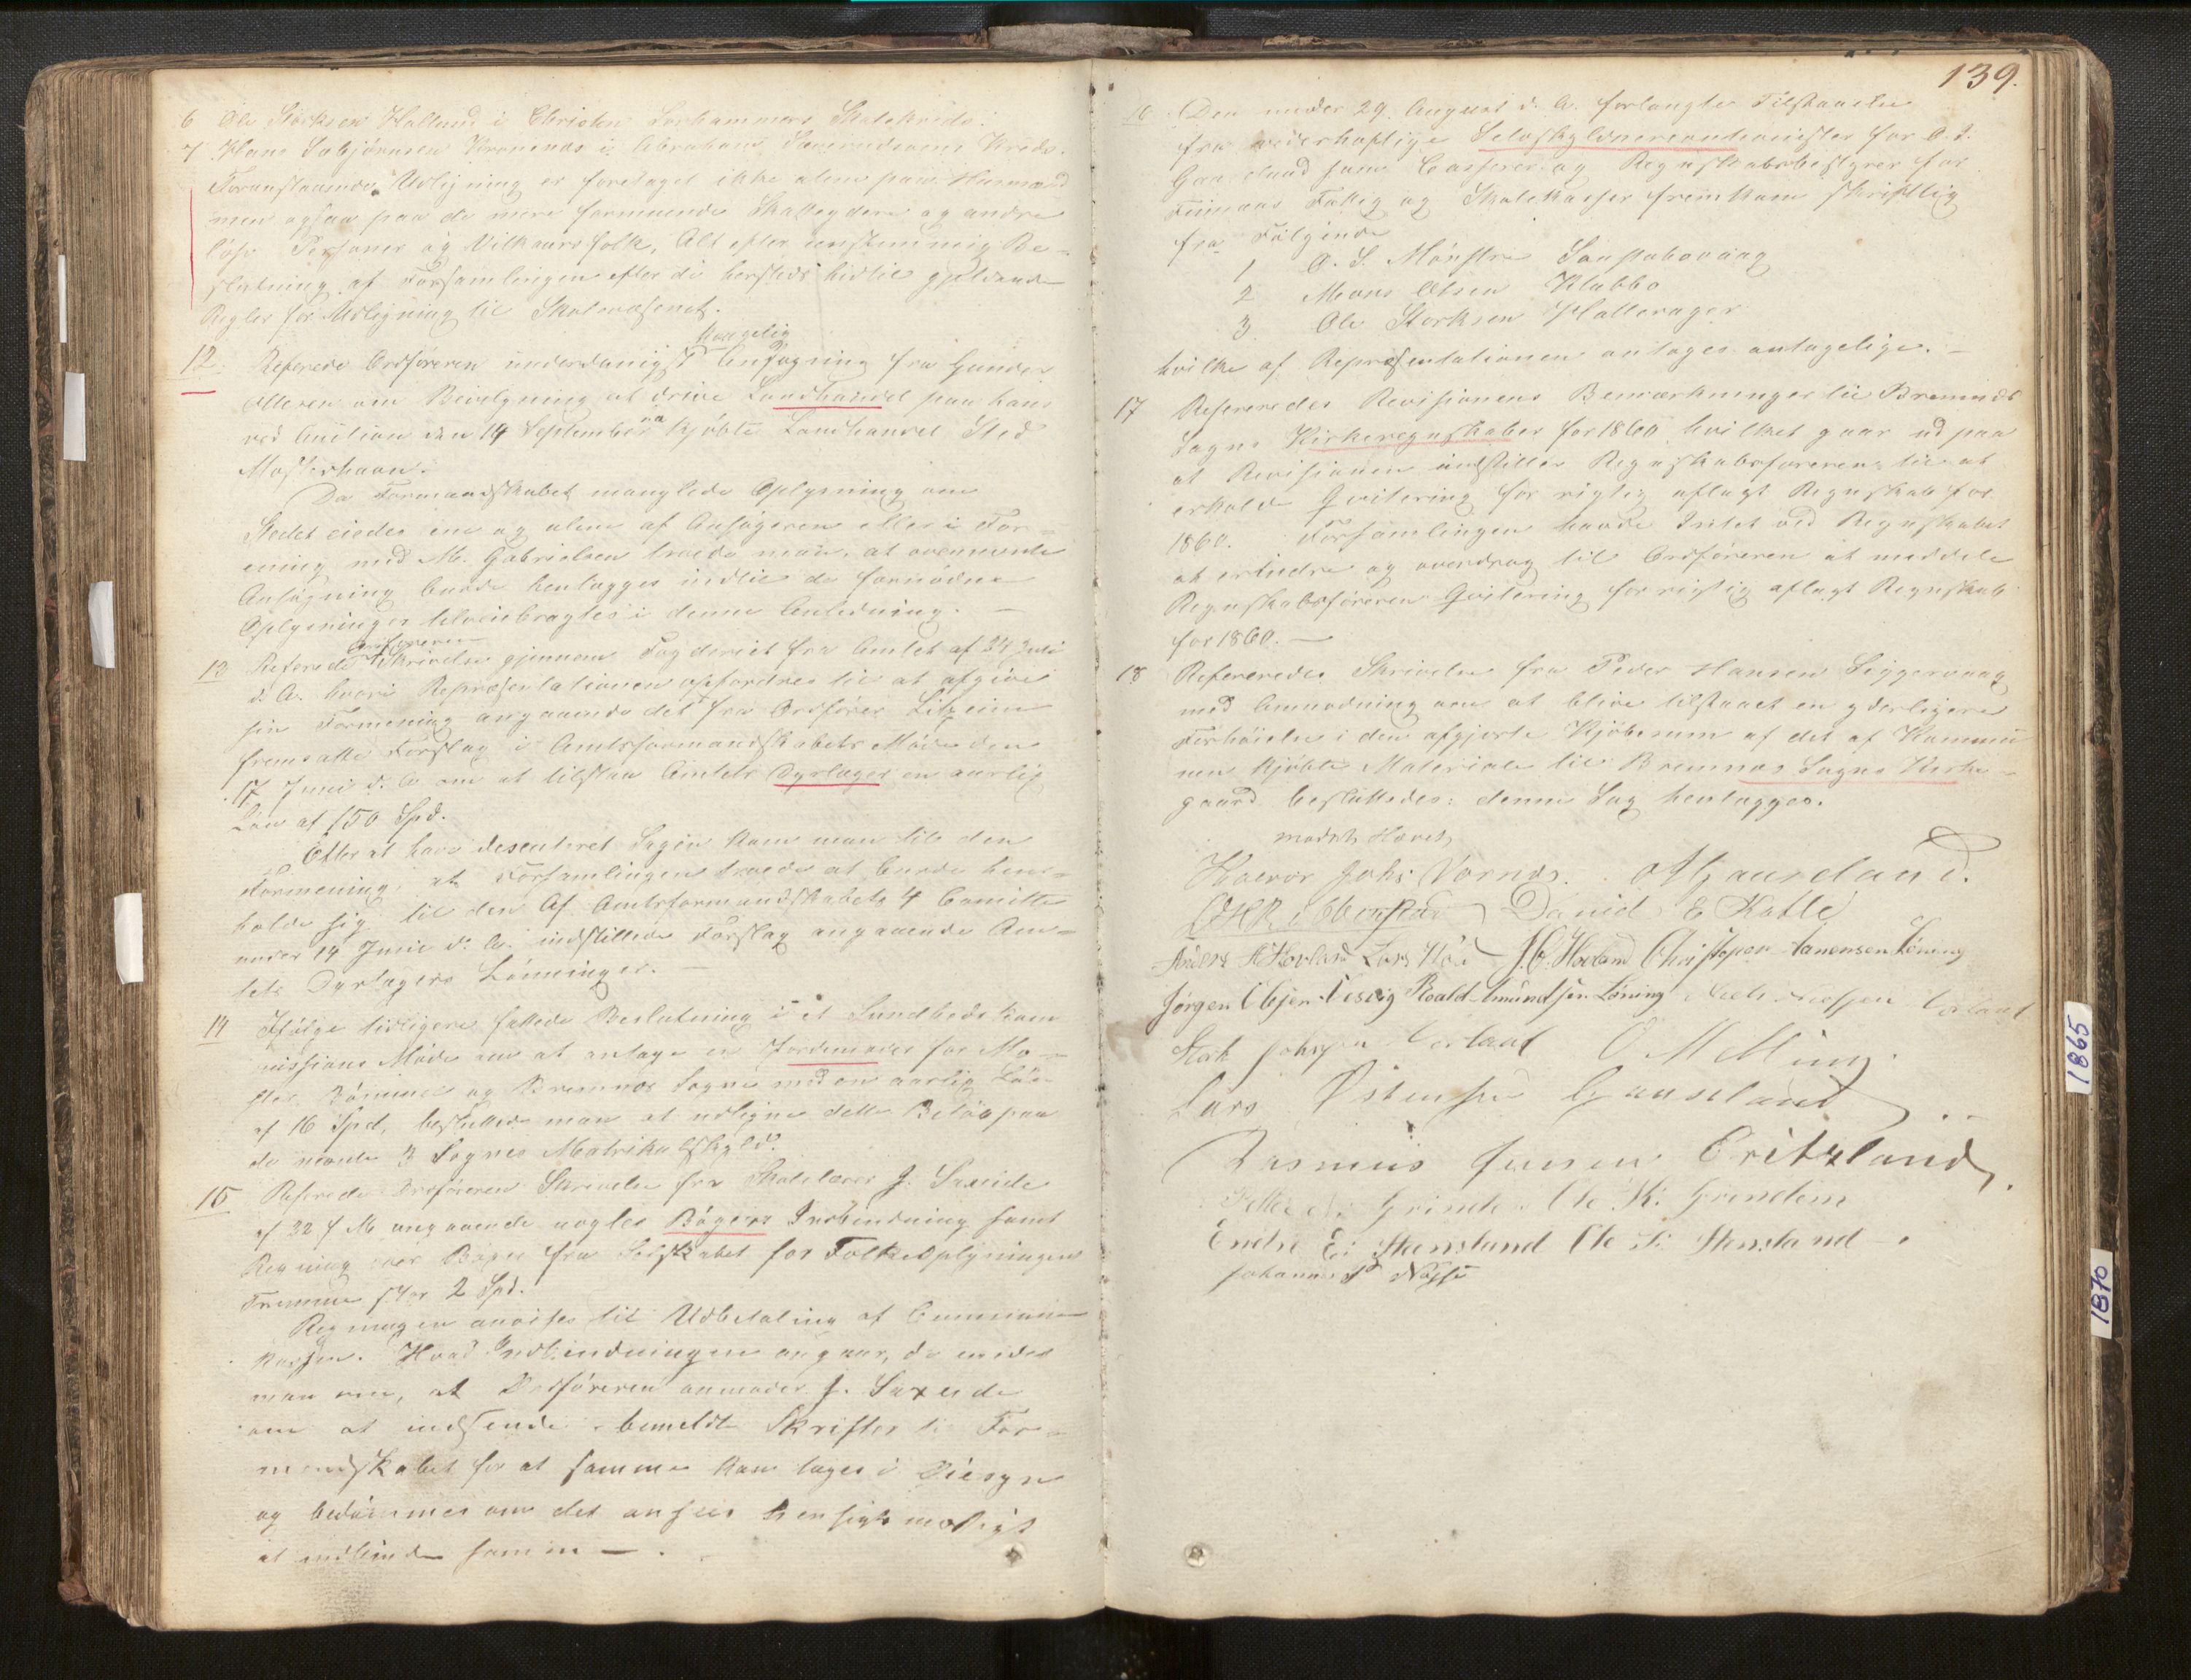 6 Ole Størksen Halleraas i Christen Sorhammers Skolekreds.
7 Hans Torbjørnsen Bremnæs i Abraham Kreds.
Foranstaaende Udligning er foretaget ikke alene paa Husmænd
men ogsaa paa de mere formuende Skatteydere og andre
løse Personer og Vilkaarsfolk, Alt efter eenstemmig Be-
slutning af Forsamlingen efter de hersteds hidtil gjeldende
Regler for Udligning til Skolevæsenet.
kongelig
12. Referede Ordføreren underdanigst Ansøgning fra Gunder
Ollersen om Bevilgning at drive Landhandel paa hans
ved Auction den 14 September kjøbte Landhandel Sted
Mosterhavn.
Da Formandskabet manglede Oplysning om
Stedet eiedes ene og alene af Ansøgeren eller i For-
ening med M. Gabrielsen troede man, at ovennævnte
Ansøgning burde henlægges indtil de fornødne
Oplysninger tilveiebragtes i denne Anledning. —
Ordføreren
13 Referede Skrivelse gjennem Fogderiet fra Amtet af 24 Juli
d. A. hvori Repræsentationen opfordres til at afgive
sin Formening angaaende det fra Ordfører
fremsatte Forslag i Amtsformandskabets Møde den
17 Juni d. A. om at tilstaa Amtets Dyrlæger en aarlig
Løn af 150 Spd.
Efter at have descuteret Sagen kom man til den
Formening, at Forsamlingen troede at burde hen-
holde sig til den Af Amtsformandskabets 4 Comitte
under 14 Juni d. A. indstillede Forslag angaaende Am-
tets Dyrlægers Lønninger. —
14 Ifølge tidligere fattede Beslutning i et Sundhedskom
missions Møde om at antage en Jordemoder for Mo-
ster, Bømmel og Bremnæs Sogne med en aarlig Løn
af 16 Spd, besluttede man at udligne dette Beløb paa
de nævnte 3 Sognes Matrikulskyld.
15 Referede Ordføreren Skrivelse fra Skolelærer J. Saxeide
af 22 f M angaaende nogle Bøgers Indbindning samt
Regning over Bøger fra Selskabet for Folkeoplysningens
Fremme stor 2 Spd.
Regningen anvistes til Udbetaling af Commune
kassen. Hvad Indbindningen angaar, da enedes
man om, at Ordføreren anmoder J. Saxeide
om at indsende bemeldte Skrifter til For-
mandskabet for at samme kan tages i Øiesyn
og bedømmes om det ansees hensigtsmæssigt
at indbinde samme — .
139.
16 Den under 29. August d. A. forlangte Tilstaaelse
fra vederhæftige Selvskyldnercautionister for O. I.
Gaasland som Casserer og Regnskabsbestyrer for
Finnaas Fattig og Skolekasser fremkom skriftlig
fra Følgende
1 O. S. Mønstre
2 Mons Olsen Klubbo
3 Ole Størksen Hallerager
hvilke af Repræsentationen antages antagelige. —
17 Refereredes Revisionens Bemærkninger til Bremnæs
Sogns Kirkeregnskaber for 1860 hvilket gaar ud paa
at Revisionen indstiller Regnskabsføreren til at
erholde Qvitering for rigtig aflagt Regnskab for
1860. Forsamlingen havde Intet ved Regnskabet
at erindre og overdrog til Ordføreren at meddele
Regnskabsføreren Qvitering for rigtig aflagt Regnskab
for 1860. —
18 Refereredes Skrivelse fra Peder Hansen Siggervaag
med Anmodning om at blive tilstaaet en yderligere
Forhøielse i den afgjorte Kjøbesum af det af Kommu
nen kjøbte Materiale til Bremnæs Sogns Kirke-
gaard besluttedes: denne Sag henlægges.
mødet Hævet
Haavor Johs: Vornæs. O I Gaasland.
David E Katle
Anders A Hovland Lars H. J. O. Hovland Christopher Hanensen Løning
Jørgen Roald Amundsen Løning
Størk Johsen O Melling.
Lars Østensen Gaasland
Rasmus Jensen Eritzland
Grinde Ole K: Grinden
Endre E: Steensland Ole S: Stensland
Johannes P Næsse
1865
1870